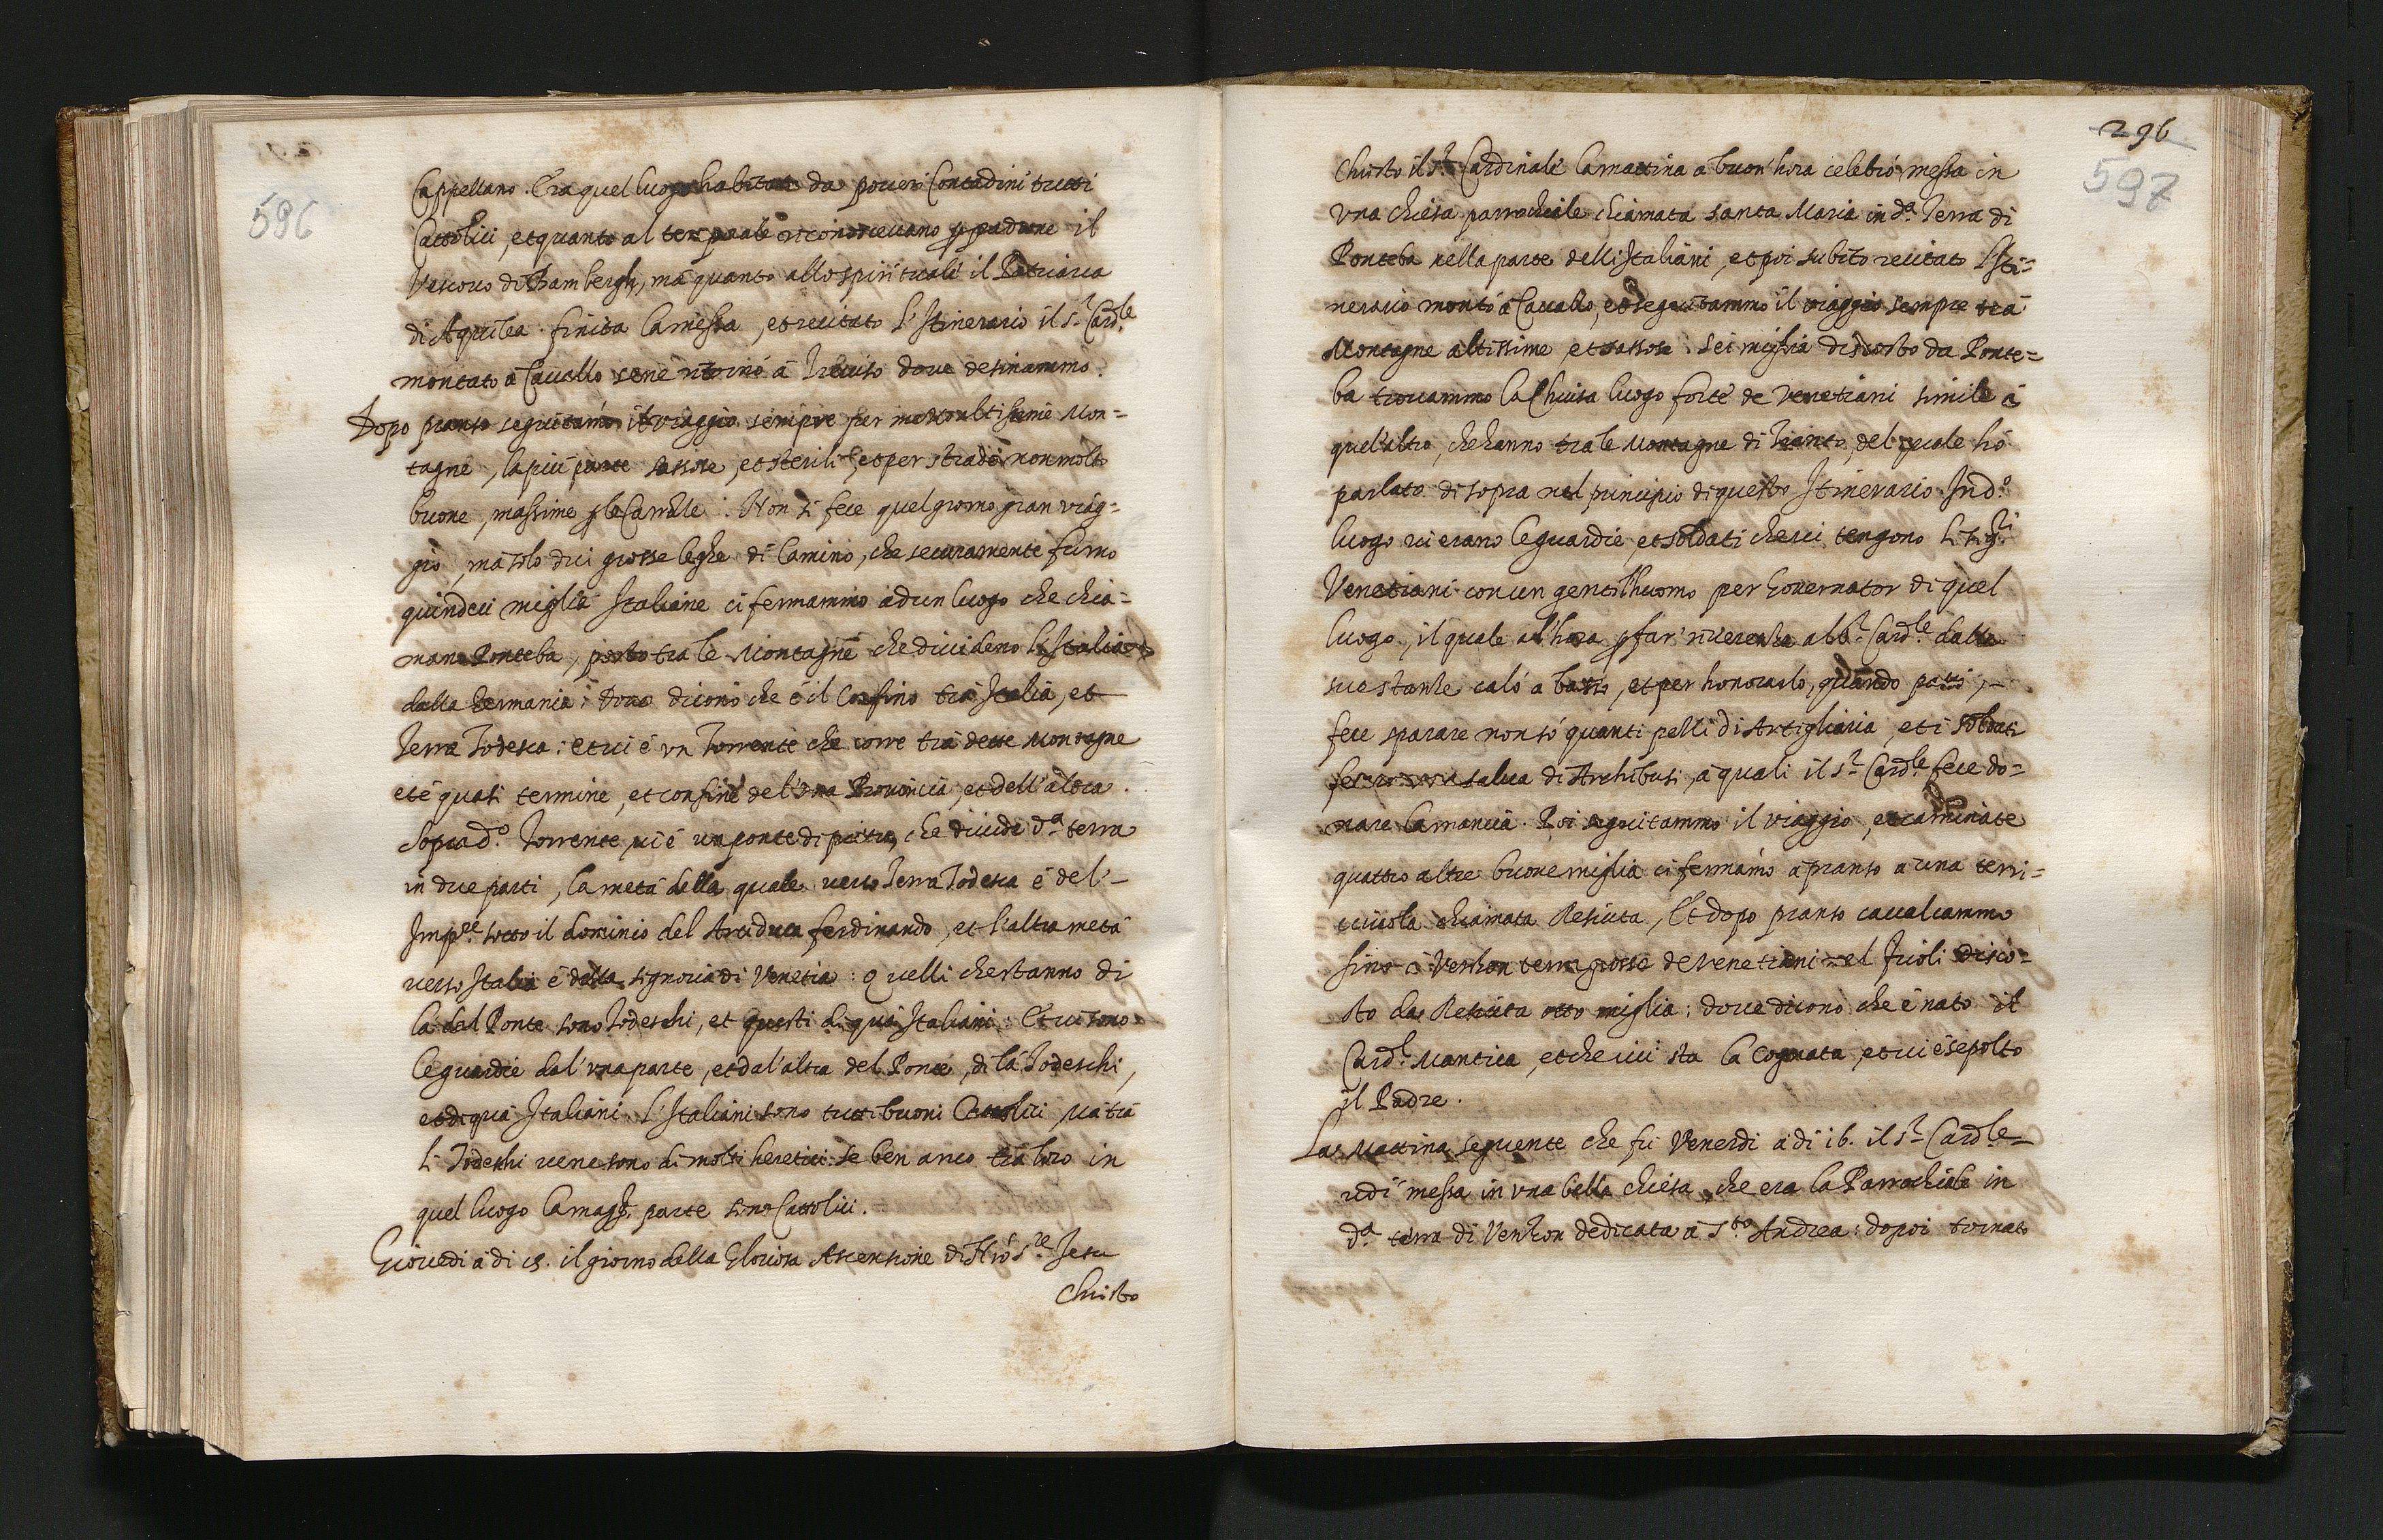 596
Cappellano. Era quel luogo habitato da poveri Contadini tutti
Cattolici, et quanto al temporale riconoscevano p padrone il
Vescovo di Bambergh, mà quanto allo spirituale il Patriarca
di Aquilea. finita la messa, et recitato l'Itinerario il s.r Card.le
montato à Cavallo se ne ritornò à Treviso dove desinammo.
Dopo pranso seguitamo il viaggio sempre per mezo altissime Mon=
tagne, la più parte sassose, et sterili, et per strade non molto
buone, massime p le Carrozze. Non si fece quel giorno gran viag=
gio, ma solo dui grosse leghe di Camino, che securamente furno
quindeci miglia Italiane ci fermammo ad un luogo che chia=
mano Ponteba, posto tra le Montagne che dividono l'Italia
dalla Germania: Dove dicono che è il Confino trà Italia, et
Terra Todesca: et vi è vn Torrente che corre trà dette Montagne
et è quasi termine, et confine del'vna Provincia, et dell'altra.
Sopra d.o Torrente vi è un ponte di pietra, che divide d.a terra
in due parti, la metà della quale verso Terra Todesca è del'-
Imp.re sotto il dominio del Arciduca ferdinando, et l'altra metà
verso Italia è della signoria di Venetia: Quelli che stanno di
là dal Ponte sono Todeschi, et questi di quà Italiani. Et vi sono
le guardie dal'vna parte, et dal'altra del Ponte, di là Todeschi,
et di quà Italiani. L'Italiani sono tutti buoni Cattolici, mà trà
li Todeschi ve ne sono di molti heretici: se ben anco trà loro in
quel luogo la magg.r parte sono Cattolici.
Giovedi à di 15. il giorno della Gloriosa Ascensione di Nrō S.re Jesu
Christo
296
597
Christo il s.r Cardinale la mattina à buon'hora celebrò messa in
vna chiesa parrochiale chiamata santa Maria in d.a Terra di
Ponteba nella parte delli Italiani, et poi subito recitato l'Iti=
nerario montò à Cavallo, et seguitammo il viaggio sempre trà
Montagne altissime et sassose. Sei miglia discosto da Ponte=
ba trovammo la Chiusa luogo forte de Venetiani simile à
quel'altro, che hanno tra le Montagne di Trento, del quale hò
parlato di sopra nel principio di questo Itinerario. In d.o
luogo vi erano le guardie, et soldati che vi tengono li sig.ri
Venetiani con un gentilhuomo per Governator di quel
luogo, il quale al'hora p far riverenza al s.r Card.le dalle
sue stanze calò à basso, et per honorarlo, quando passò,-
fece sparare non sò quanti pezzi di Artigliaria, et i soldati
fecero vna salva di Archibusi, à quali il s.r Card.le fece do=
nare la mancia. Poi seguitammo il viaggio, et caminate
quattro altre buone miglia ci fermāmo à pranso a una terri=
cciuola chiamata Resciuta, Et dopo pranso cavalcammo
sino à Venzon terra grossa de Venetiani nel frioli disco=
sto da Resciuta otto miglia: dove dicono che è nato il
Card.l Mantica, et che vi sta la Cognata, et vi è sepolto
il Padre.
La Mattina seguente che fu Venerdi à di 16. il s.r Card.le-
udì messa in vna bella chiesa, che era la Parrochiale in
d.a terra di Venzon dedicata à s.to Andrea: dopoi tornato